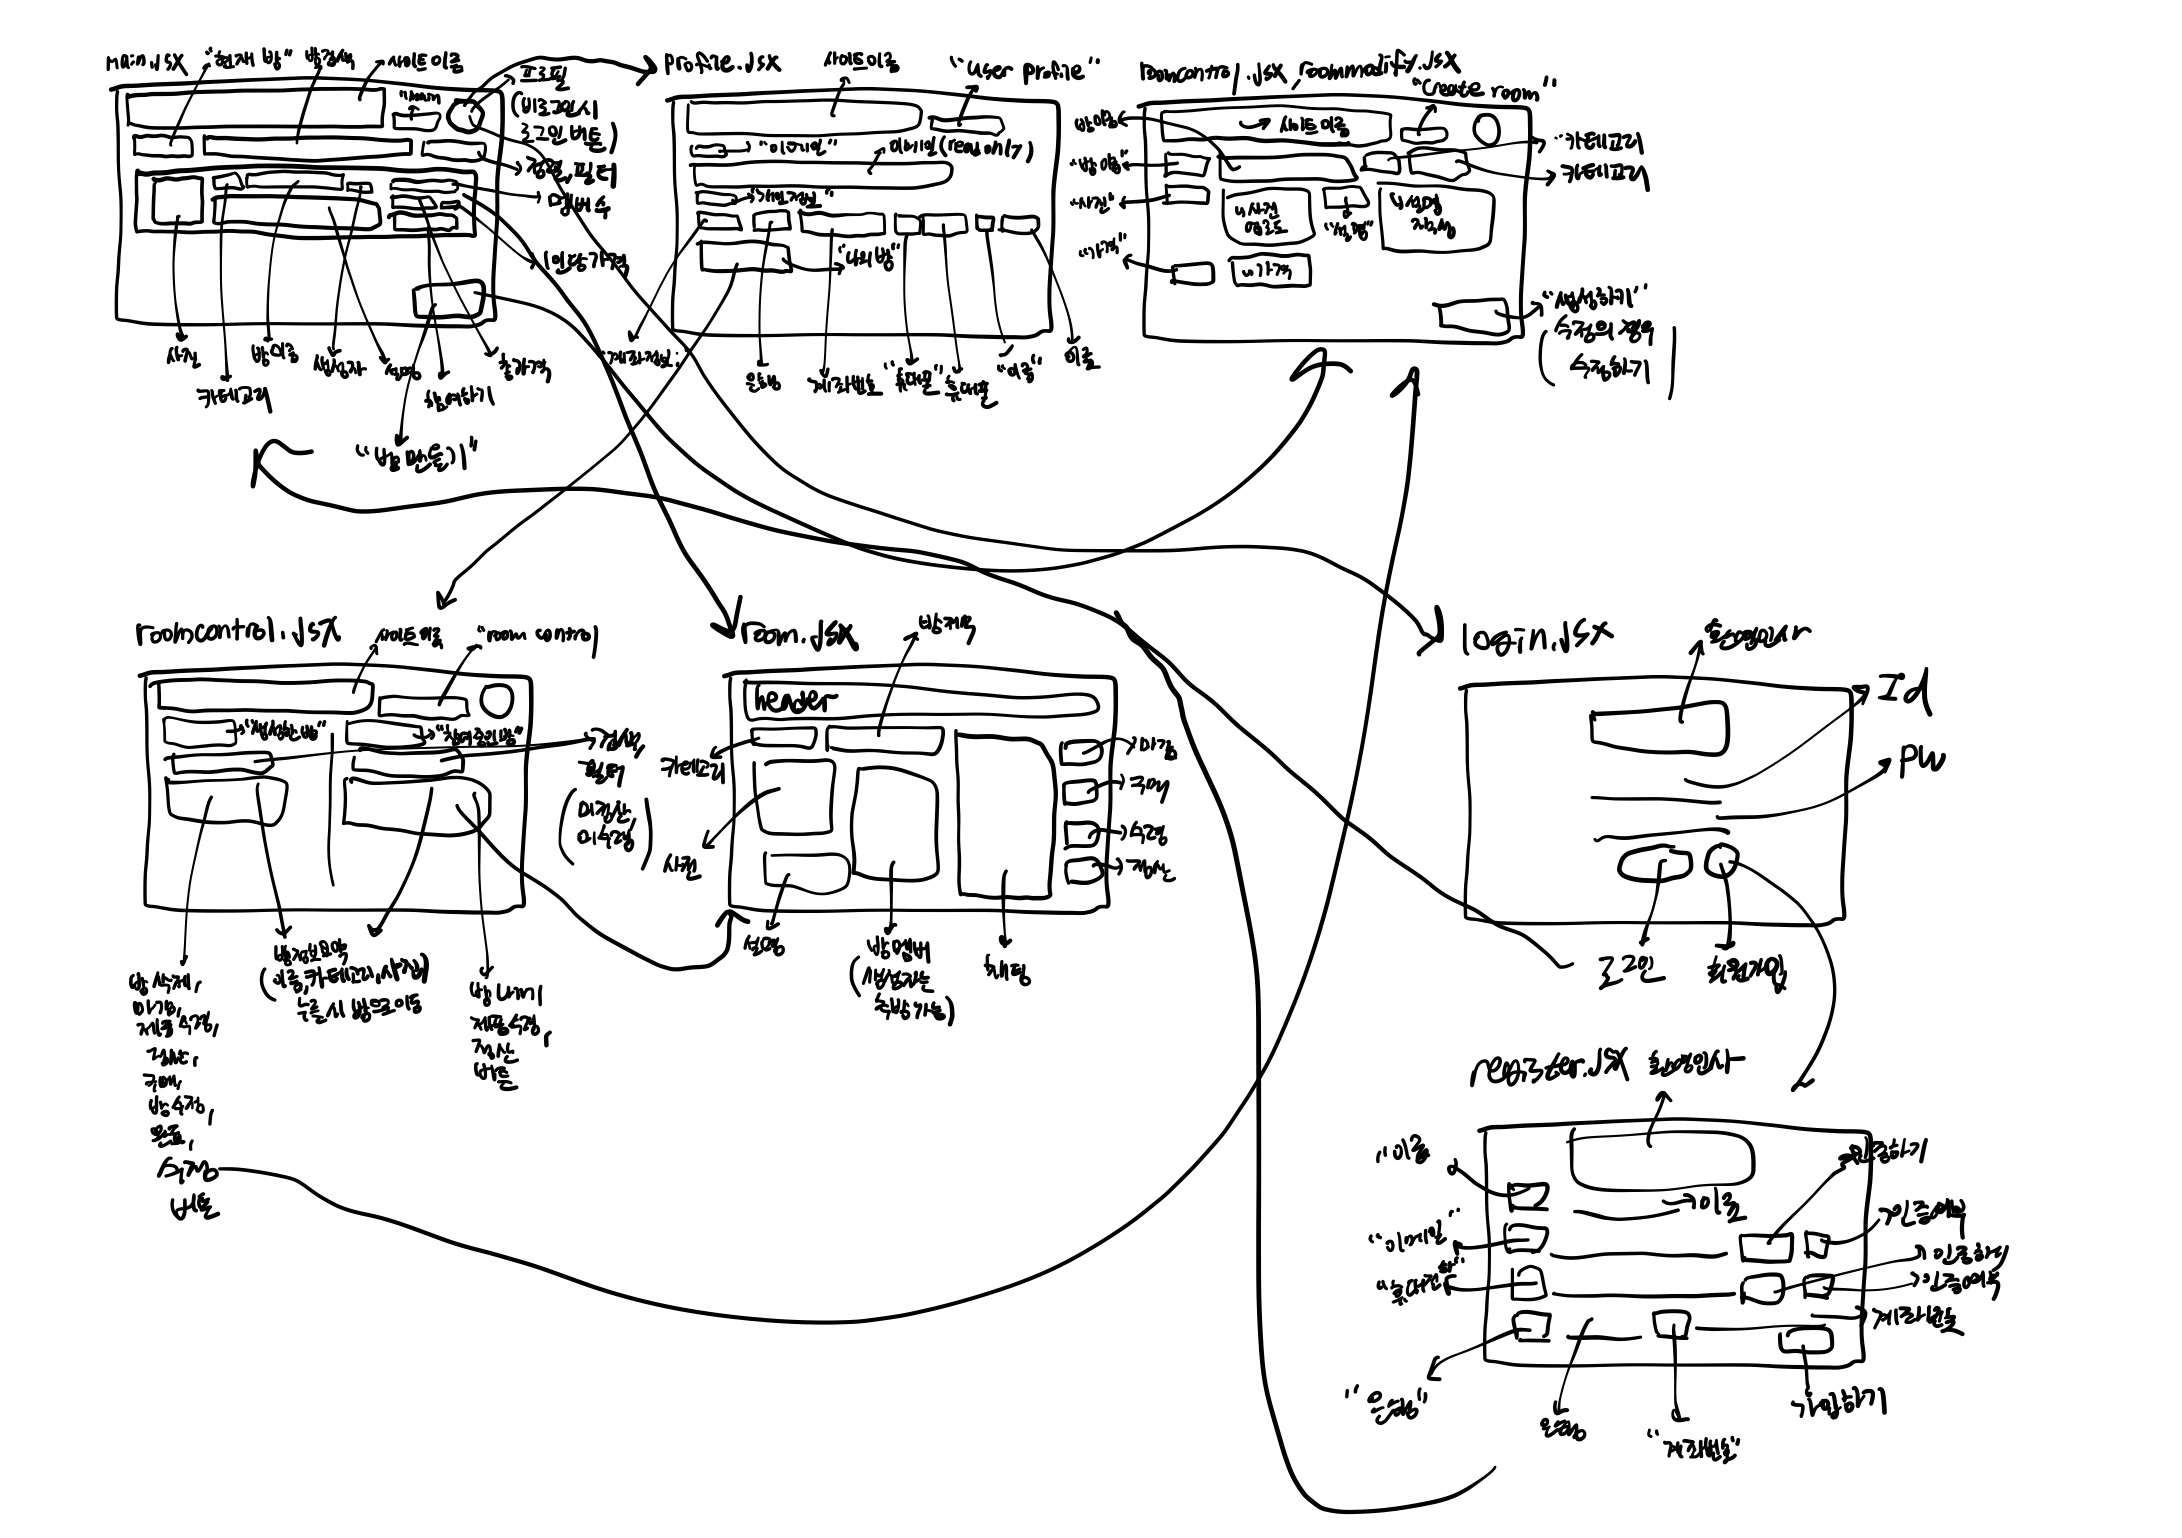 main.jsx
"현재 방"
방검색
사이트이름
"main"
프로필
(비로그인시
로그인버튼)
정렬,필터
멤버 수
1인당가격
사진
카테고리
방이름
생성자
설명
참여하기
총가격
"방 만들기"
profile.jsx
사이트이름
"user profile"
"이메일"
이메일(read only)
"개인정보"
"나의 방"
"계좌정보:
은행
계좌번호
"휴대폰"
휴대폰
"이름"
이름
roomcontrol.jsx, roommodify.jsx
"create room"
방이름
사이트이름
"카테고리
카테고리
"방이름"
"사진"
사진
업로드
"설명"
설명
작성
"가격"
가격
"생성하기"
(수정의 경우
수정하기)
roomcontrol.jsx
사이트이름
"room control
"생성한 방"
"참여중인방"
검색,
필터
(미정산,
미수령)
방삭제,
마감,
제품수령,
정산,
구매,
방수정,
완료,
수정
버튼
방정보요약
(이름,카테고리,사진)
누를시 방으로이동
방 나가기
제품수령,
정산
버튼
room.jsx
방제목
header
카테고리
사진
설명
방멤버
(생성자는
추방가능)
채팅
마감
구매
수령
정산
login.jsx
환영인사
Id
PW
로그인
회원가입
register.jsx
환영인사
"이름
이름
인증하기
"이메일"
인증여부
"휴대전화"
인증하기
인증여부
계좌번호
"은행"
은행
"계좌번호"
가입하기